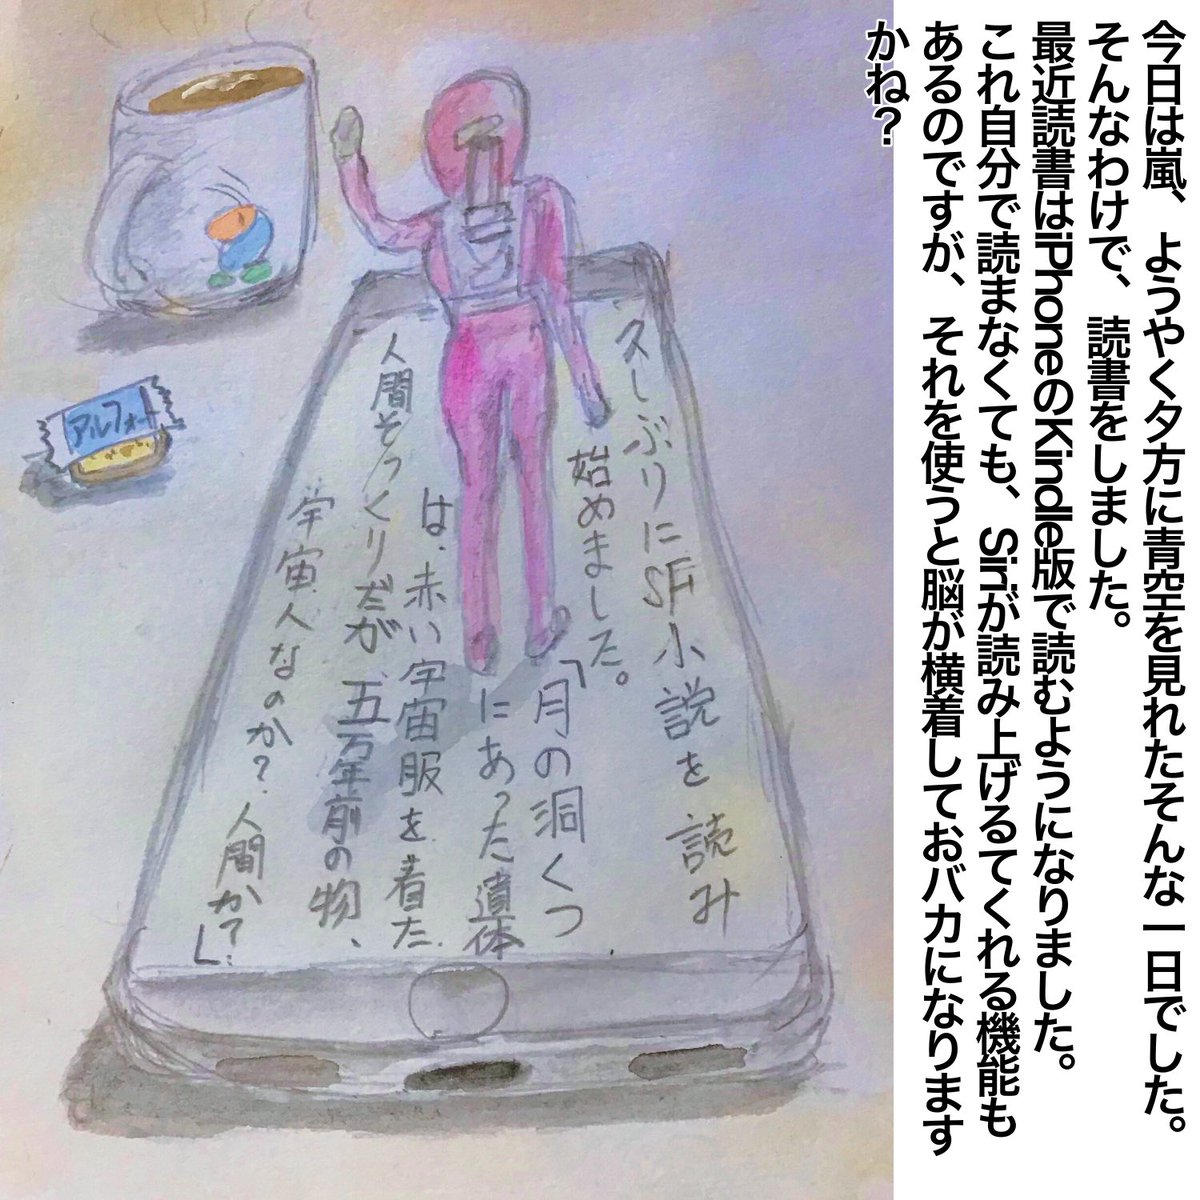 今日は嵐、ようやく夕方に青空を見れたそんな一日でした。
そんなわけで、読書をしました。
最近読書はiPhoneのKindle版で読むようになりました。
これ自分で読まなくても、Siriが読み上げるてくれる機能も
あるのですが、それを使うと脳が横着しておバカになります
かね?
久しぶりにSF小説を読み
始めました。
「月の洞くつ
にあった遺体
は、赤い宇宙服を着た
人間そっくりだが、五万年前の物、
宇宙人なのか?人間か?」
アルフォート